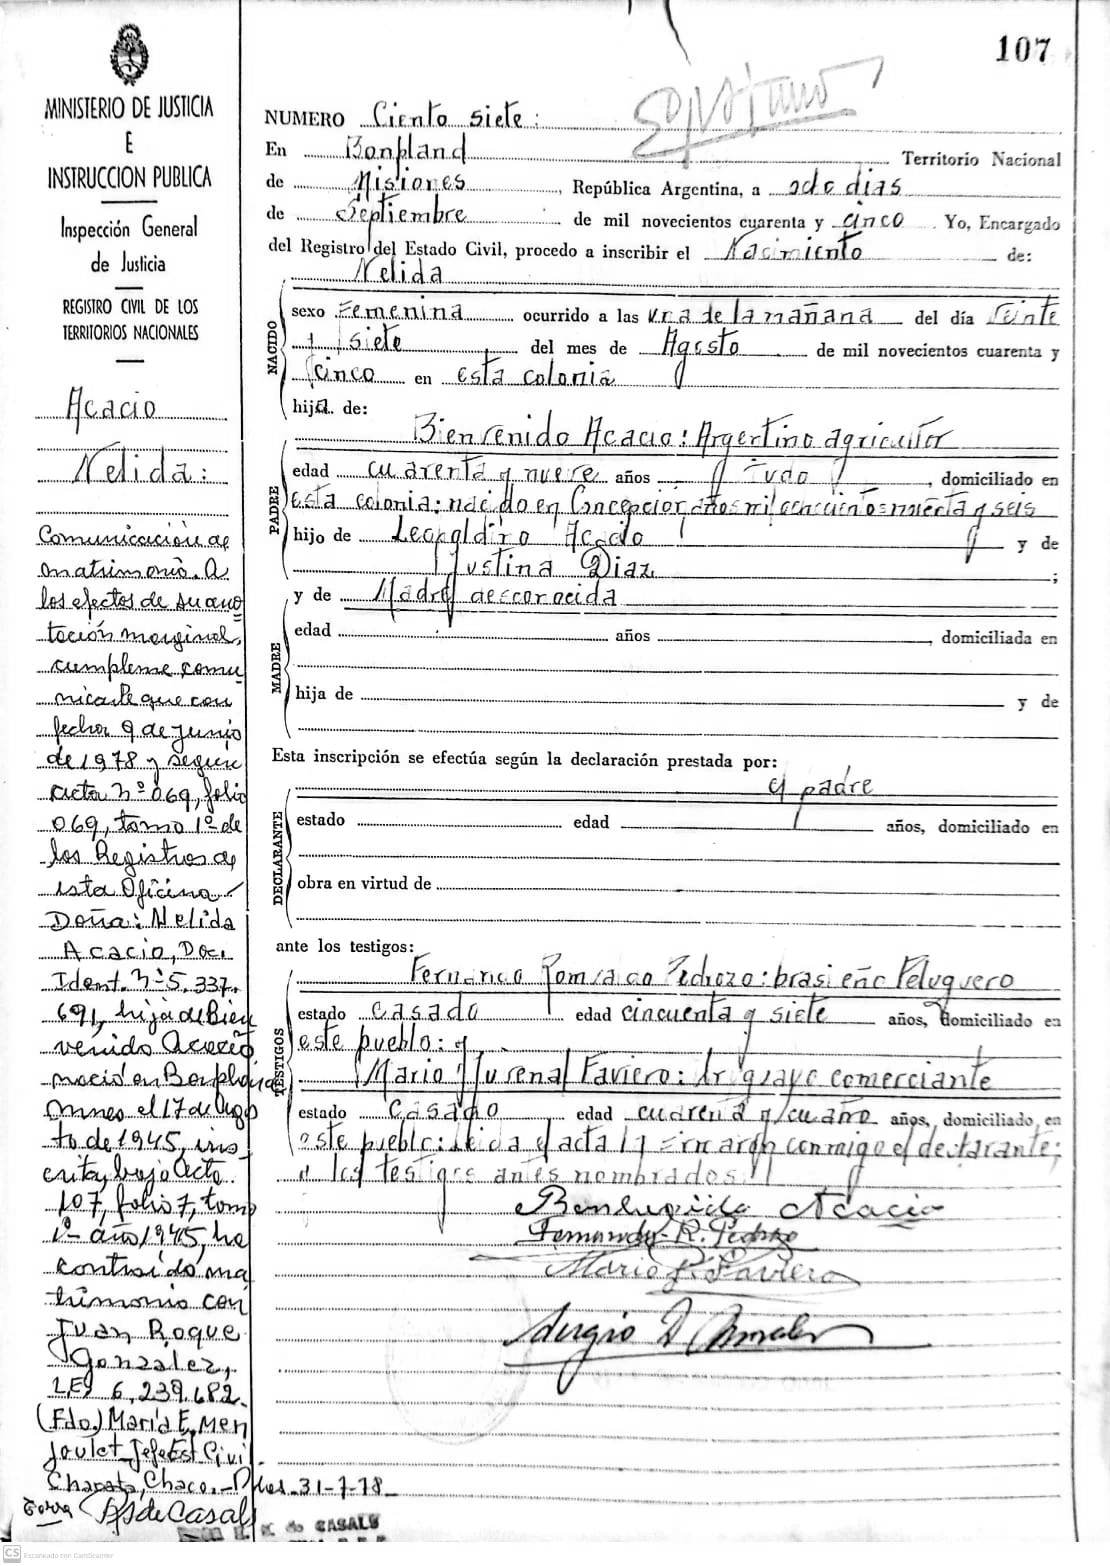 107
MINISTERIO DE JUSTICIA
E
INSTRUCCION PUBLICA
Inspección General
de Justicia
REGISTRO CIVIL DE LOS
TERRITORIOS NACIONALES
Acacio
Nelida:
Comunicación de
matrimonio. A
los efectos de su ano
tación marginal,
cumpleme comu
nicarle que con
fecha 9 de junio
de 1978 y segun
acta Nº 069, folio
069, tomo 1º de
los Registros de
esta Oficina
Doña: Nelida
Acacio, Doc.
Ident. Nº 5.337.
691, hija de Bien
venido Acacio
nació en Bonpland
Mnes el 17 de Agos
to de 1945, ins
crita bajo Acta
107, folio 7, tomo
1º año 1945, ha
contraido ma
trimonio con
Juan Roque
Gonzalez,
LE 6,239.682.
(Fdo.) Maria E. Men
Jefe Est Civil
Chaco. 31-7-78
de Casals
NUMERO Ciento siete:
En Bonpland Territorio Nacional
de Misiones, República Argentina, a ocho dias
de Septiembre de mil novecientos cuarenta y cinco. Yo, Encargado
del Registro del Estado Civil, procedo a inscribir el Nacimiento de:
Nelida
NACIDO
sexo Femenina ocurrido a las una de la mañana del día Veinte
y siete del mes de Agosto de mil novecientos cuarenta y
cinco en esta colonia
hija de:
PADRE
Bienvenido Acacio: Argentino agricultor
edad cuarenta y nueve años y viudo, domiciliado en
esta colonia: nacido en Concepcion años mil ochocientos noventa y seis
hijo de Leopoldino Acacio y de
Justina Diaz;
y de Madre desconocida
MADRE
edad años, domiciliada en
hija de y de
Esta inscripción se efectúa según la declaración prestada por:
el padre
DECLARANTE
estado edad años, domiciliado en
obra en virtud de
ante los testigos:
TESTIGOS
Fernando Pedrozo: brasileño Peluquero
estado casado edad cincuenta y siete años, domiciliado en
este pueblo: y
Mario Juvenal Faviero: Uruguayo comerciante
estado casado edad cuarenta y cuatro años, domiciliado en
este pueblo: Leida el acta la firmaron conmigo el declarante;
y los testigos antes nombrados
Bienvenido Acacio
Fernando R. Pedrozo
Mario J. Faviero
Sergio D. Morales
de CASALS
CS Escaneado con CamScanner